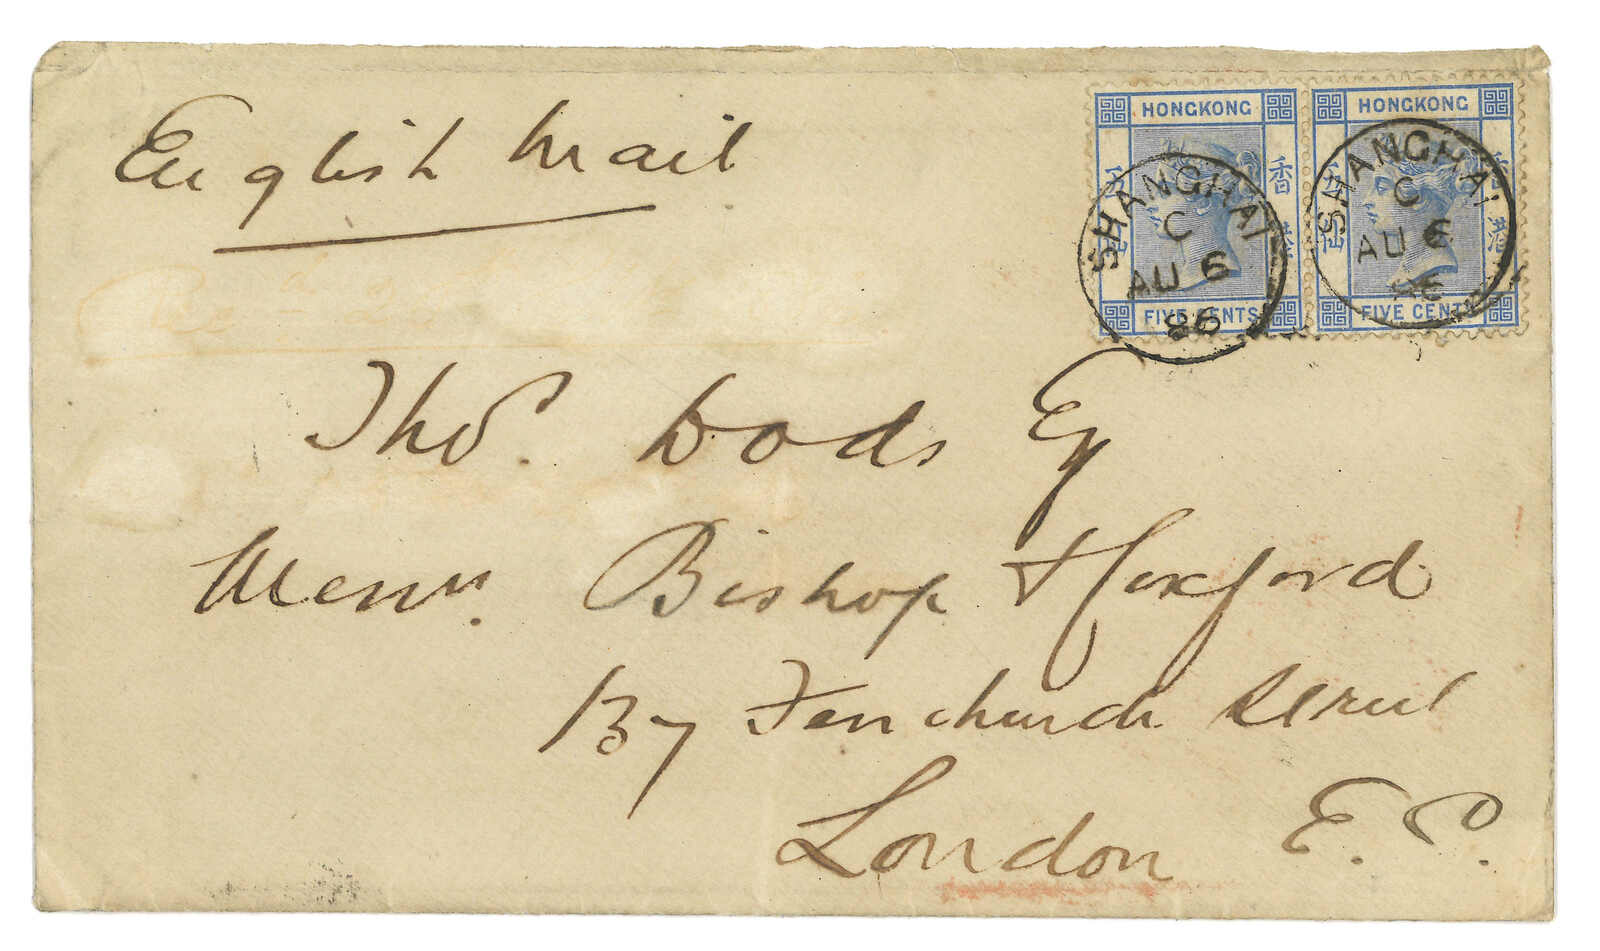 English Mail
HONGKONG
香港
五仙
FIVE CENTS
HONGKONG
香港
五仙
FIVE CENTS
SHANGHAI
C
AU 6
86
SHANGHAI
C
AU 6
86
Thos. Dods Esq
Messrs. Bishop & Hoxford
137 Fenchurch Street
London E. C.